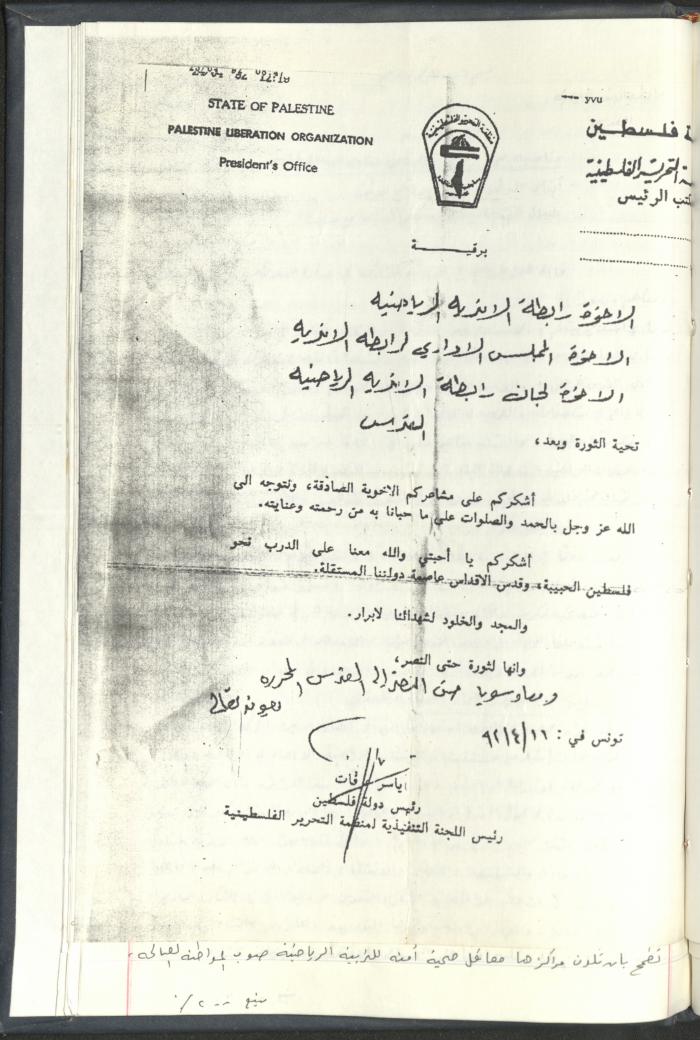 STATE OF PALESTINE
PALESTINE LIBERATION ORGANIZATION
President's Office
yvu
فلسطين
التحرير الفلسطينية
تب الرئيس
منظمة التحرير الفلسطينية
برقيـــة
الاخوة رابطة الاندية الرياضية
الاخوة المجلس الاداري لرابطة الاندية
الاخوة لجان رابطة الاندية الرياضية
القدس
تحية الثورة وبعد،
أشكركم على مشاعركم الاخوية الصادقة، ونتوجه الى
الله عز وجل بالحمد والصلوات على ما حبانا به من رحمته وعنايته.
أشكركم يا أحبتي والله معنا على الدرب نحو
فلسطين الحبيبة، وقدس الاقداس عاصمة دولتنا المستقلة.
والمجد والخلود لشهدائنا لابرار.
وانها لثورة حتى النصر،
ومعا وسويا حتى النصر الى القدس المحررة
بعونه تعالى
تونس في : ٩٢/٤/١٦
ياسر عرفات
رئيس دولة فلسطين
رئيس اللجنة التنفيذية لمنظمة التحرير الفلسطينية
تطمح بان تكون مراكزها معاقل صحية آمنة للتربية الرياضية صوب المواطنة الصالحة.
يتبع